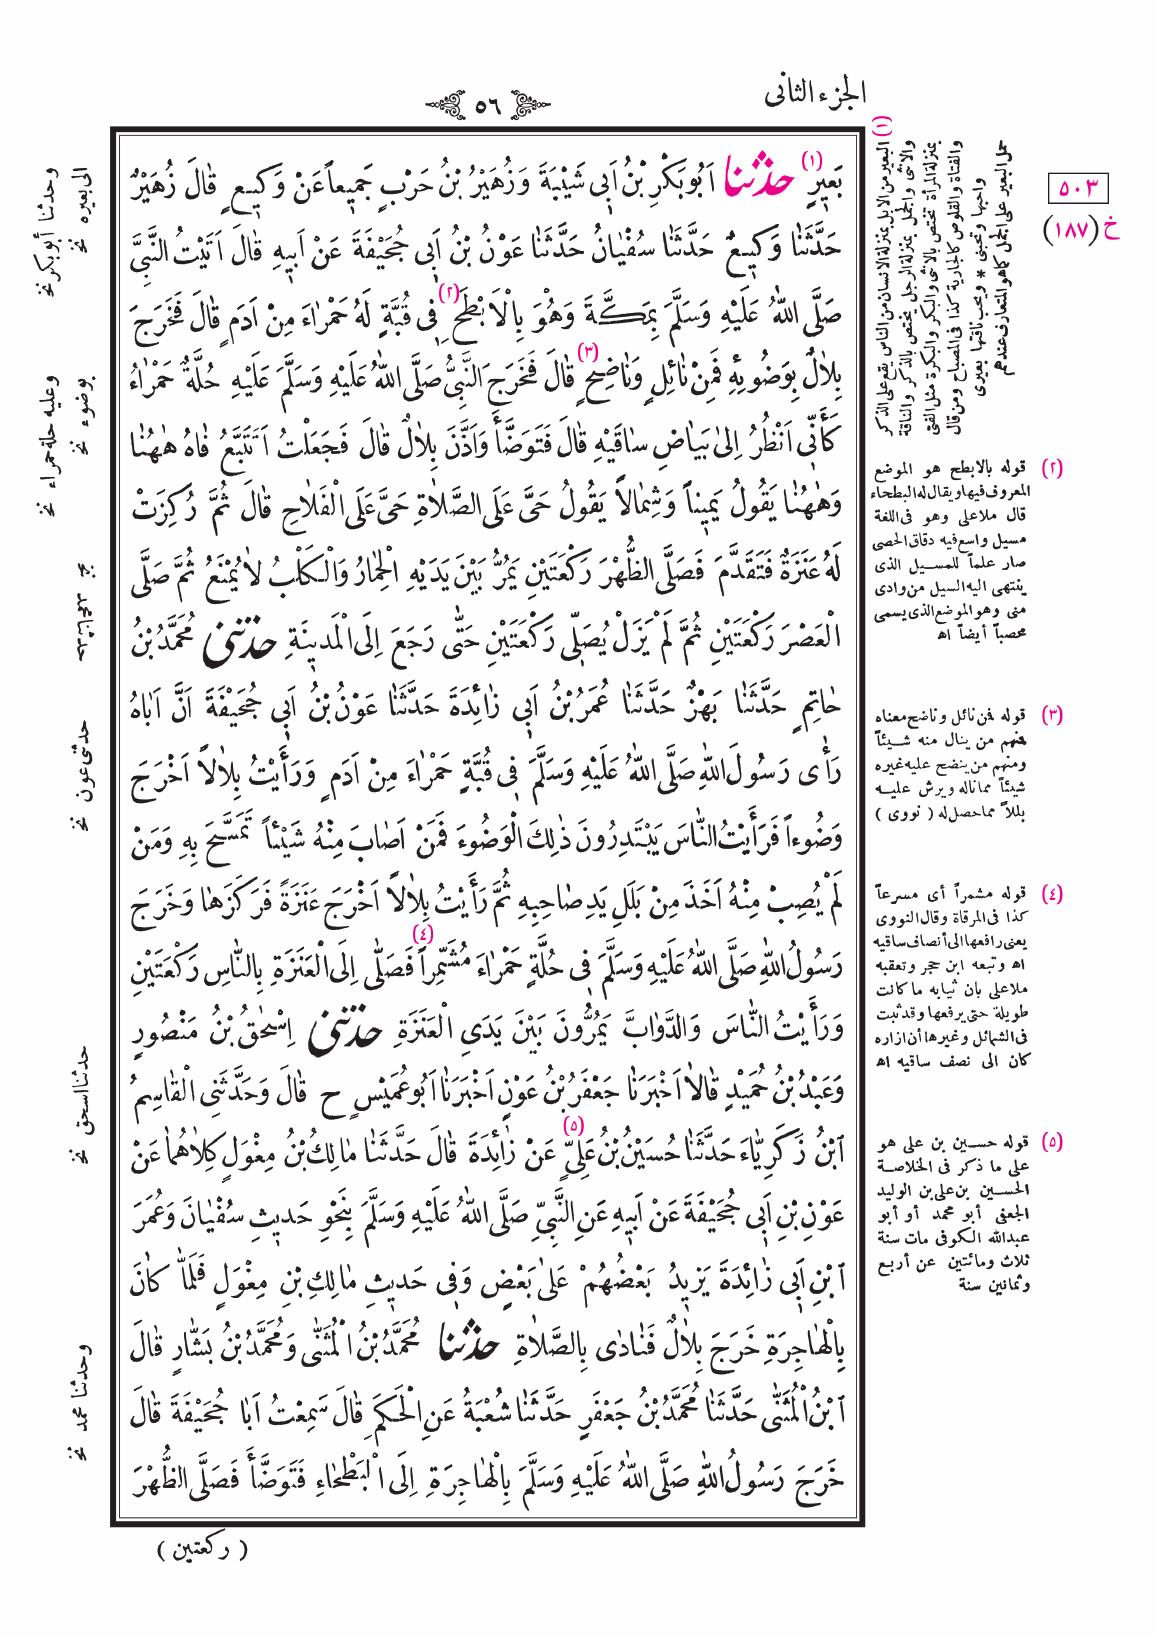 الجزء الثانى
٥٦
بَعِيرٍ (١) حَدَّثَنَا اَبُوبَكْرِ بْنُ اَبِى شَيْبَةَ وَزُهَيْرُ بْنُ حَرْبٍ جَمِيعاً عَنْ وَكِيعٍ قَالَ زُهَيْرٌ
حَدَّثَنَا وَكِيعٌ حَدَّثَنَا سُفْيَانُ حَدَّثَنَا عَوْنُ بْنُ اَبِى جُحَيْفَةَ عَنْ اَبِيهِ قَالَ اَتَيْتُ النَّبِىَّ
صَلَّى اللهُ عَلَيْهِ وَسَلَّمَ بِمَكَّةَ وَهُوَ بِالْاَبْطَحِ (٢) فِى قُبَّةٍ لَهُ حَمْرَاءَ مِنْ اَدَمٍ قَالَ فَخَرَجَ
بِلَالٌ بِوَضُوئِهِ فَمِنْ نَائِلٍ وَنَاضِحٍ (٣) قَالَ فَخَرَجَ النَّبِىُّ صَلَّى اللهُ عَلَيْهِ وَسَلَّمَ عَلَيْهِ حُلَّةٌ حَمْرَاءُ
كَأَنِّى اَنْظُرُ اِلَى بَيَاضِ سَاقَيْهِ قَالَ فَتَوَضَّأَ وَاَذَّنَ بِلَالٌ قَالَ فَجَعَلْتُ اَتَتَبَّعُ فَاهُ هٰهُنَا
وَهٰهُنَا يَقُولُ يَمِيناً وَشِمَالاً يَقُولُ حَىَّ عَلَى الصَّلَاةِ حَىَّ عَلَى الْفَلَاحِ قَالَ ثُمَّ رُكِزَتْ
لَهُ عَنَزَةٌ فَتَقَدَّمَ فَصَلَّى الظُّهْرَ رَكْعَتَيْنِ يَمُرُّ بَيْنَ يَدَيْهِ الْحِمَارُ وَالْكَلْبُ لَا يُمْنَعُ ثُمَّ صَلَّى
الْعَصْرَ رَكْعَتَيْنِ ثُمَّ لَمْ يَزَلْ يُصَلِّى رَكْعَتَيْنِ حَتَّى رَجَعَ اِلَى الْمَدِينَةِ حَدَّثَنِى مُحَمَّدُ بْنُ
حَاتِمٍ حَدَّثَنَا بَهْزٌ حَدَّثَنَا عُمَرُ بْنُ اَبِى زَائِدَةَ حَدَّثَنَا عَوْنُ بْنُ اَبِى جُحَيْفَةَ اَنَّ اَبَاهُ
رَأَى رَسُولَ اللهِ صَلَّى اللهُ عَلَيْهِ وَسَلَّمَ فِى قُبَّةٍ حَمْرَاءَ مِنْ اَدَمٍ وَرَأَيْتُ بِلَالاً اَخْرَجَ
وَضُوءاً فَرَأَيْتُ النَّاسَ يَبْتَدِرُونَ ذٰلِكَ الْوَضُوءَ فَمَنْ اَصَابَ مِنْهُ شَيْئاً تَمَسَّحَ بِهِ وَمَنْ
لَمْ يُصِبْ مِنْهُ اَخَذَ مِنْ بَلَلِ يَدِ صَاحِبِهِ ثُمَّ رَأَيْتُ بِلَالاً اَخْرَجَ عَنَزَةً فَرَكَزَهَا وَخَرَجَ
رَسُولُ اللهِ صَلَّى اللهُ عَلَيْهِ وَسَلَّمَ فِى حُلَّةٍ حَمْرَاءَ مُشَمِّراً (٤) فَصَلَّى اِلَى الْعَنَزَةِ بِالنَّاسِ رَكْعَتَيْنِ
وَرَأَيْتُ النَّاسَ وَالدَّوَابَّ يَمُرُّونَ بَيْنَ يَدَىِ الْعَنَزَةِ حَدَّثَنِى اِسْحٰقُ بْنُ مَنْصُورٍ
وَعَبْدُ بْنُ حُمَيْدٍ قَالَا اَخْبَرَنَا جَعْفَرُ بْنُ عَوْنٍ اَخْبَرَنَا اَبُو عُمَيْسٍ ح قَالَ وَحَدَّثَنِى الْقَاسِمُ
ابْنُ زَكَرِيَّاءَ حَدَّثَنَا حُسَيْنُ بْنُ عَلِىٍّ (٥) عَنْ زَائِدَةَ قَالَ حَدَّثَنَا مَالِكُ بْنُ مِغْوَلٍ كِلَاهُمَا عَنْ
عَوْنِ بْنِ اَبِى جُحَيْفَةَ عَنْ اَبِيهِ عَنِ النَّبِىِّ صَلَّى اللهُ عَلَيْهِ وَسَلَّمَ بِنَحْوِ حَدِيثِ سُفْيَانَ وَعُمَرَ
ابْنِ اَبِى زَائِدَةَ يَزِيدُ بَعْضُهُمْ عَلَى بَعْضٍ وَفِى حَدِيثِ مَالِكِ بْنِ مِغْوَلٍ فَلَمَّا كَانَ
بِالْهَاجِرَةِ خَرَجَ بِلَالٌ فَنَادَى بِالصَّلَاةِ حَدَّثَنَا مُحَمَّدُ بْنُ الْمُثَنَّى وَمُحَمَّدُ بْنُ بَشَّارٍ قَالَ
ابْنُ الْمُثَنَّى حَدَّثَنَا مُحَمَّدُ بْنُ جَعْفَرٍ حَدَّثَنَا شُعْبَةُ عَنِ الْحَكَمِ قَالَ سَمِعْتُ اَبَا جُحَيْفَةَ قَالَ
خَرَجَ رَسُولُ اللهِ صَلَّى اللهُ عَلَيْهِ وَسَلَّمَ بِالْهَاجِرَةِ اِلَى الْبَطْحَاءِ فَتَوَضَّأَ فَصَلَّى الظُّهْرَ
( ركعتين )
٥٠٣
خ (١٨٧)
(١) البعير من الابل بمنزلة الانسان من الناس يقع على الذكر
والانثى والجمل بمنزلة الرجل يختص بالذكر والناقة
بمنزلة المرأة تختص بالانثى والبكر والبكرة مثل الفتى
والفتاة والقلوص كالجارية كذا فى المصباح ومن قال
واحبها وتحبنى * ويحب ناقتها بعيرى
حمل البعير على الجمل كما هو المتعارف عندهم
(٢) قوله بالابطح هو الموضع
المعروف فيها ويقال له البطحاء
قال ملا على وهو فى اللغة
مسيل واسع فيه دقاق الحصى
صار علماً للمسيل الذى
ينتهى اليه السيل من وادى
منى وهو الموضع الذى يسمى
محصباً أيضاً اه
(٣) قوله فمن نائل وناضح معناه
فمنهم من ينال منه شيئاً
ومنهم من ينضح عليه غيره
شيئاً مما ناله ويرش عليه
بللاً مما حصل له ( نووى )
(٤) قوله مشمراً أى مسرعاً
كذا فى المرقاة وقال النووى
يعنى رافعها الى أنصاف ساقيه
اه وتبعه ابن حجر وتعقبه
ملا على بان ثيابه ما كانت
طويلة حتى يرفعها وقد ثبت
فى الشمائل وغيرها أن ازاره
كان الى نصف ساقيه اه
(٥) قوله حسين بن على هو
على ما ذكر فى الخلاصة
الحسين بن على بن الوليد
الجعفى أبو محمد أو أبو
عبدالله الكوفى مات سنة
ثلاث ومائتين عن أربع
وثمانين سنة
الى بعيره نخ
وحدثنا أبو بكر نخ
بوضوء نخ
وعليه حلة حمراء نخ
حدثنى عون نخ
حدثنا اسحق نخ
وحدثنا محمد نخ